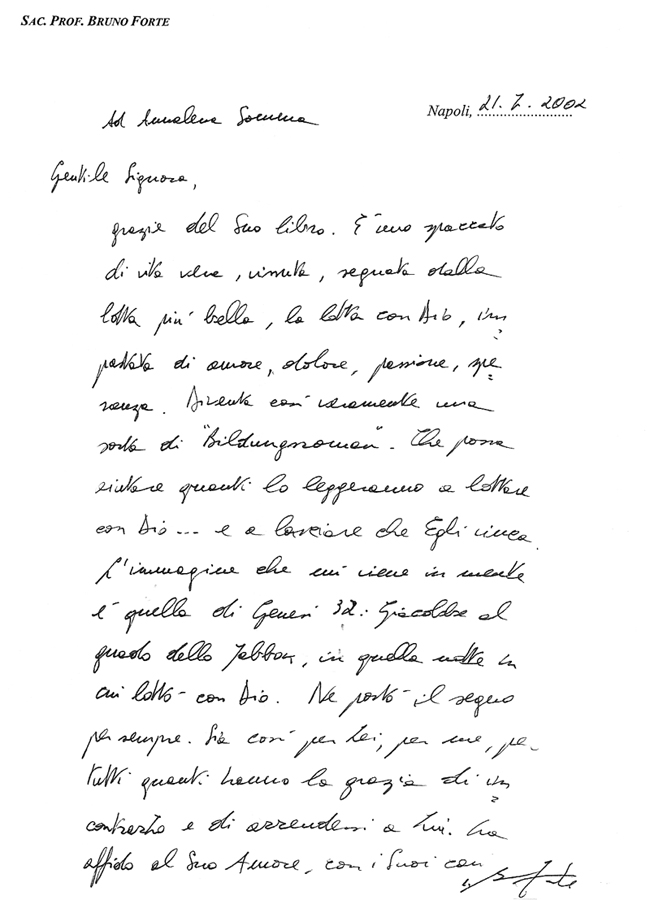 SAC. PROF. BRUNO FORTE
Napoli, 21.7.2002
Ad Annalena
Gentile Signora,
grazie del Suo libro. È uno spaccato
di vita vera, vissuta, segnata dalla
lotta più bella, la lotta con Dio, im
pastata di amore, dolore, passione, spe
ranza. Diventa così veramente una
sorta di "Bildungsroman". Che possa
aiutare quanti lo leggeranno a lottare
con Dio... e a lasciare che Egli vinca.
L'immagine che mi viene in mente
è quella di Genesi 32: Giacobbe al
guado dello Jabbok, in quella notte in
cui lottò con Dio. Ne portò il segno
per sempre. Sia così per Lei, per me, per
tutti quanti hanno la grazia di in
contrarLo e di arrendersi a Lui. La
affido al Suo Amore, con i Suoi cari